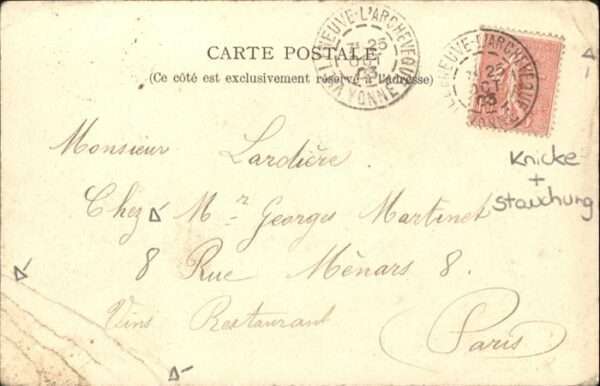 CARTE POSTALE
(Ce côté est exclusivement réservé à l'adresse)
NEUVE-L'ARCHEVEQUE
25
03
YONNE
LLENEUVE-L'ARCHEVEQUE
25
OCT
03
YONNE
Knicke
+
Stauchung
Monsieur Lardière.
Chez Mr Georges Martinet
8 Rue Ménars 8.
Vins Restaurant
Paris